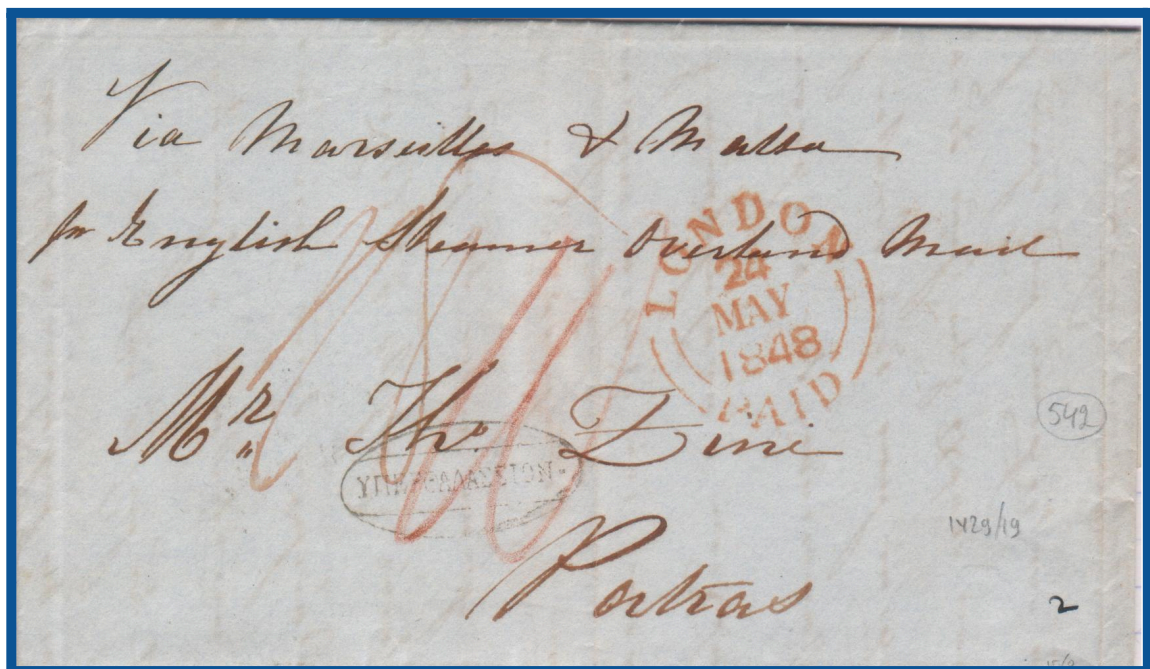 Via Marseilles & Malta
pr English Steamer Overland Mail
LONDON
24
MAY
1848
PAID
Mr. Tho. Zini
542
ΥΠΕΡΘΑΛΑΣΣΙΟΝ
1429/19
Patras
2